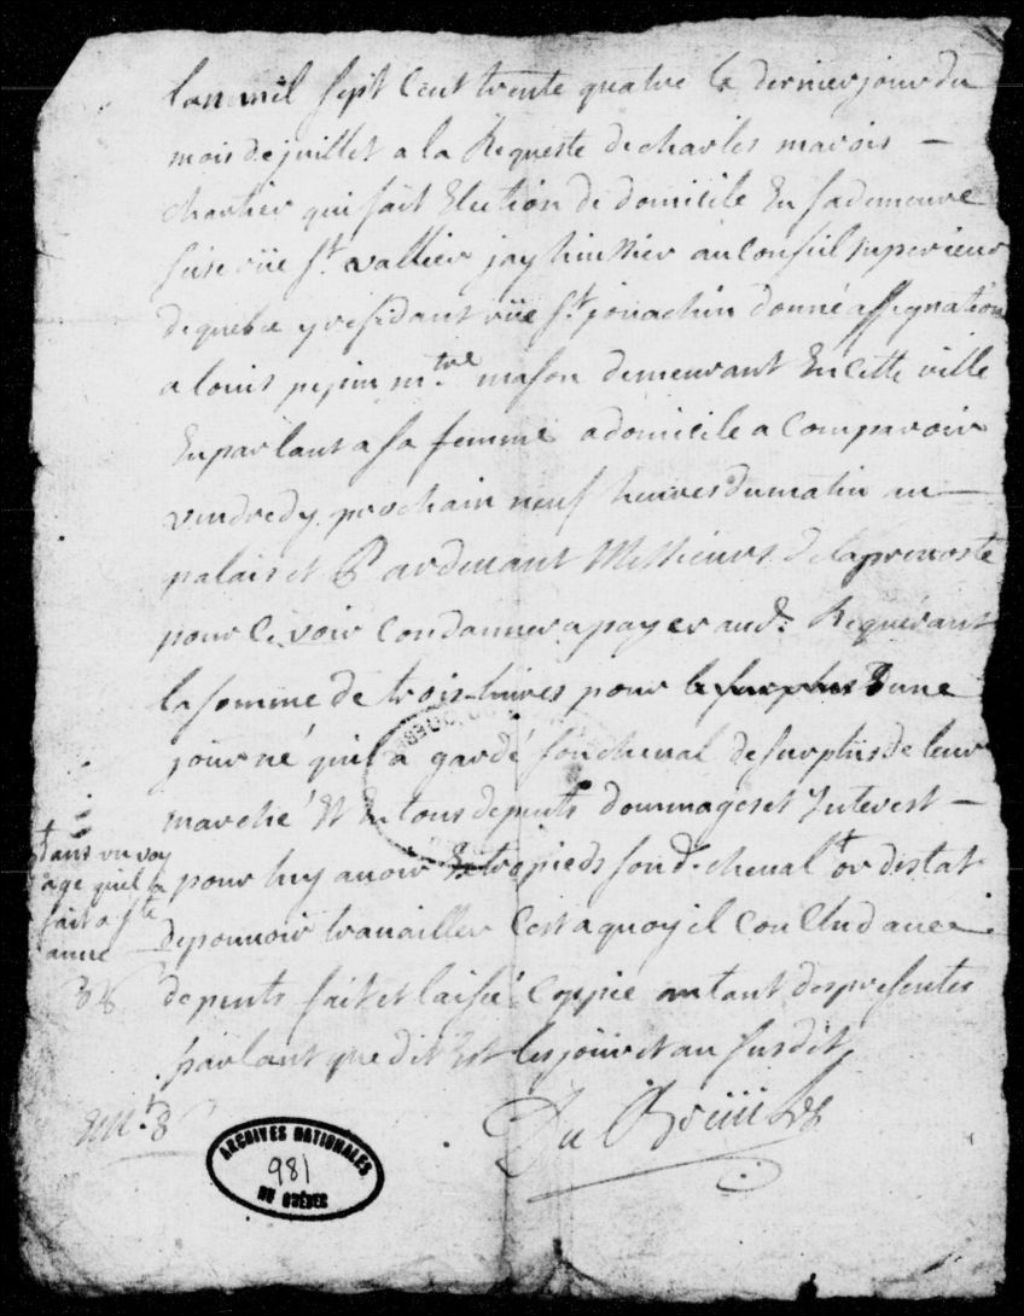 Lan mil sept Cent trente quatre Le dernier jour du
mois de juillet a la Requeste de charles marois —
chartier qui fait Election de domicile En sa demeure
size rüe St. vallier jay huissier au Conseil superieur
de quebec y residant rüe St. joriachin donné assignation
a louis pepin mtre. mason demeurant En Cette ville
En parlant a sa femme a domicile a Comparoir
vendredy prochain neuf heures du matin au —
palais et Pardevant Messieurs de la prevosté
pour Ce voir Condanner a payer aud. Requerant
la somme de trois livres pour le surplus dune
journé quil a gardé son cheval de surplus de leur
marché Et En tous depents dommages et Interest —
pour luy avoir Estropié son d. cheval + or destat
de pouvoir travailler Cest a quoy il Conclud avec
depents fait et laisée Coppie autant des presentes
parlant que dit Est les jour et an susdit,
+
dans un voy
age quil a
fait a ste
anne
Du Breüil
ARCHIVES NATIONALES
981
DU QUÉBEC